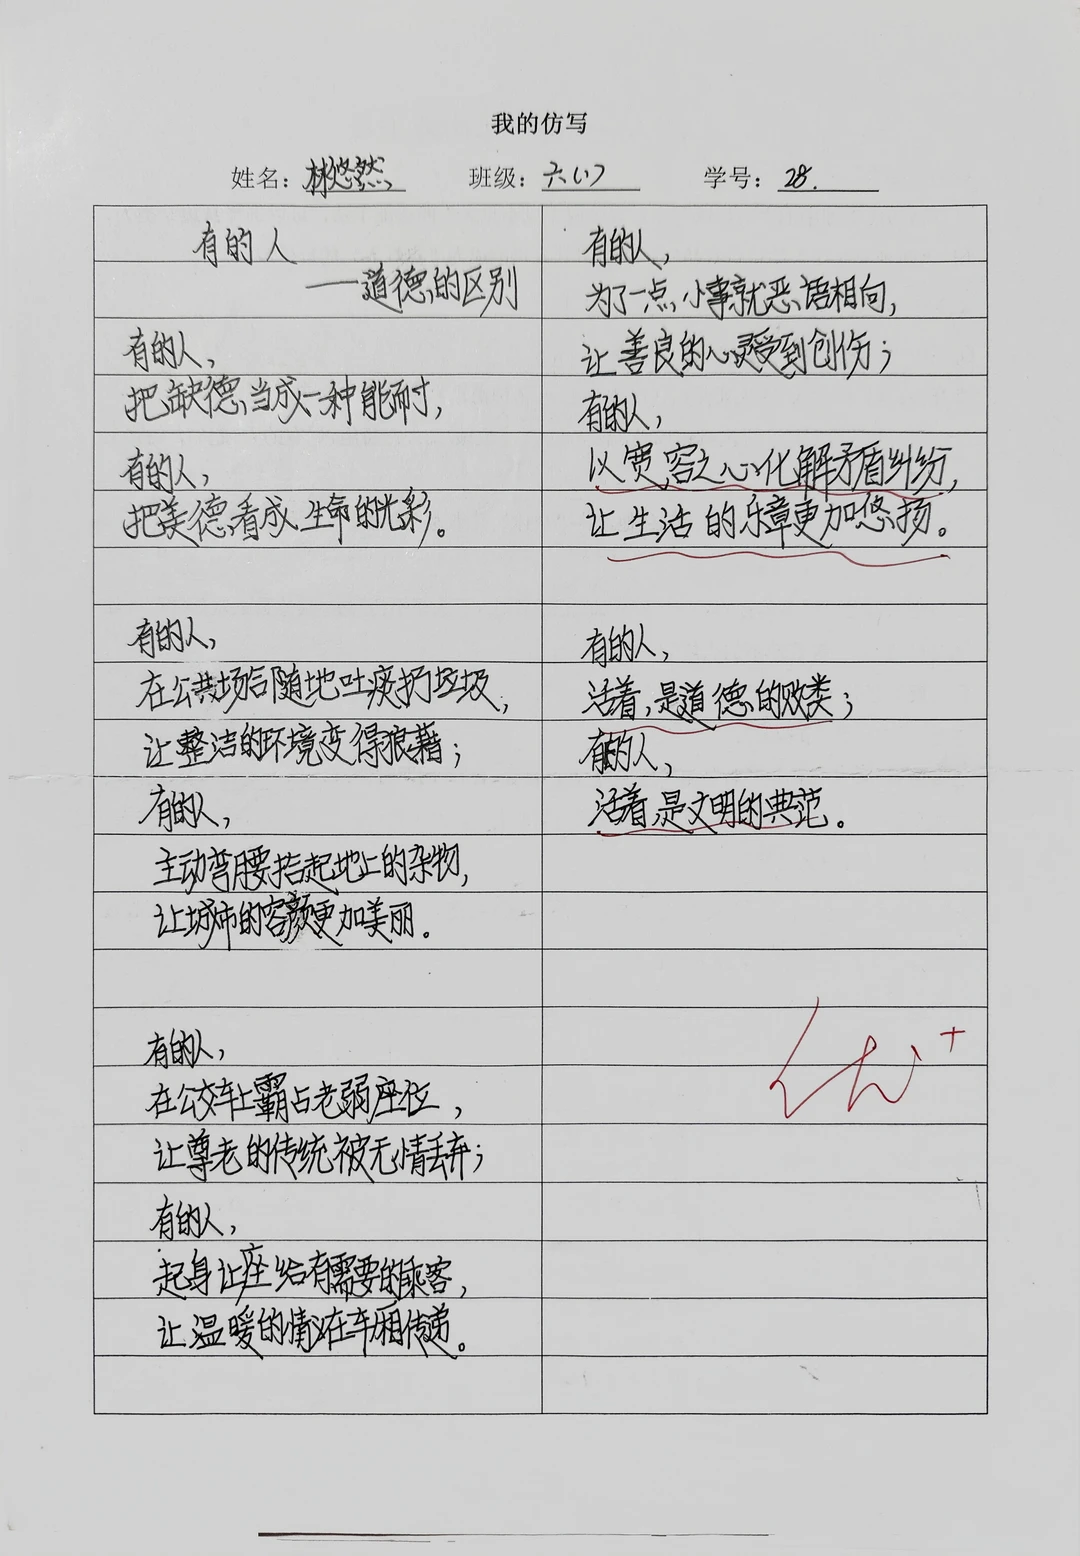 我的仿写
姓名：林悠然 班级：六(1) 学号：28.
有的人
——道德的区别
有的人，
把缺德当成一种能耐，
有的人，
把美德看成生命的光彩。
有的人，
在公共场合随地吐痰扔垃圾，
让整洁的环境变得狼藉；
有的人，
主动弯腰拾起地上的杂物，
让城市的容颜更加美丽。
有的人，
在公交车上霸占老弱座位，
让尊老的传统被无情丢弃；
有的人，
起身让座给有需要的乘客，
让温暖的情谊在车厢传递。
有的人，
为了一点小事就恶语相向，
让善良的心灵受到创伤；
有的人，
以宽容之心化解矛盾纠纷，
让生活的乐章更加悠扬。
有的人，
活着，是道德的败类；
有的人，
活着，是文明的典范。
优+